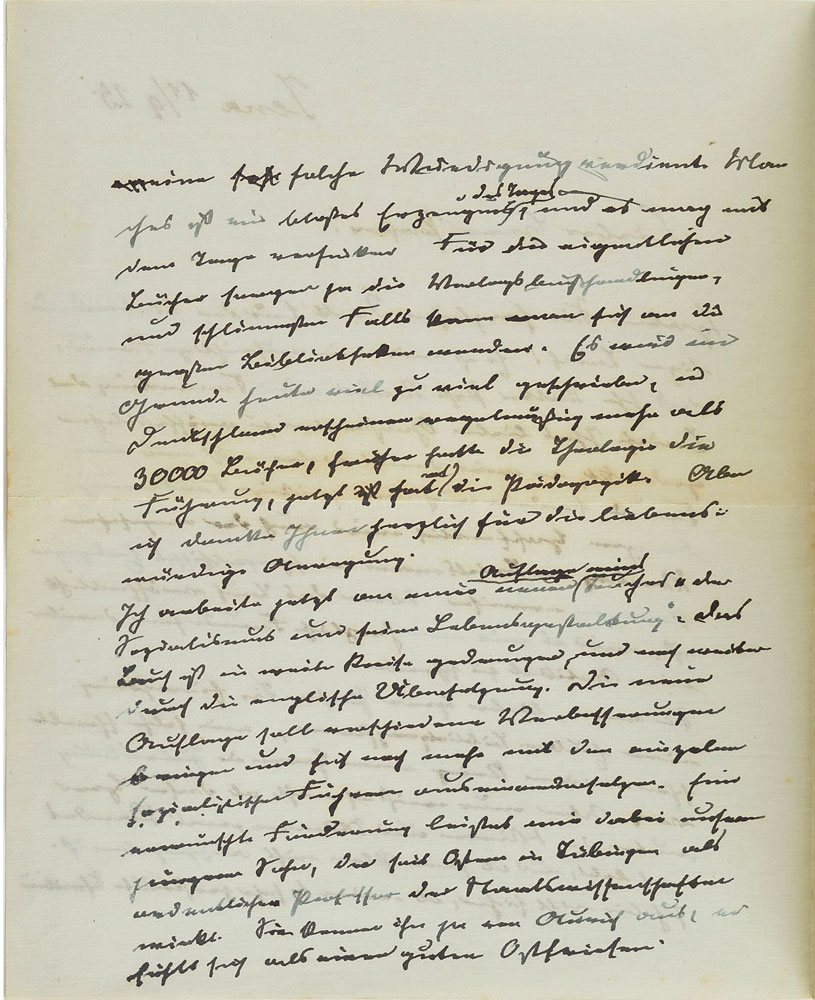 eine solche Würdigung verdient. Man
ches ist ein bloßes Erzeugnis, und es mag mit
des Tages
dem Tage versinken. Für die eigentlichen
Bücher sorgen ja die Verlagsbuchhandlungen,
und schlimmsten Falls kann man sich an die
großen Bibliotheken wenden. Es wird im
Grunde heute viel zu viel geschrieben, in
Deutschland erscheinen regelmäßig mehr als
30000 Bücher, früher hatte die Theologie die
Führung, jetzt hat die Pädagogik. Aber
ich danke Ihnen herzlich für die liebens-
würdige Anregung.
Auflage meines
Ich arbeite jetzt an einer neuen Buches „der
Sozialismus und seine Lebensgestaltung“. Das
Buch ist in weite Kreise gedrungen, und noch weiter
durch die englische Übersetzung. Die neue
Auflage soll verschiedene Verbesserungen
bringen und sich noch mehr mit den einzelnen
sozialistischen Führern auseinandersetzen. Eine
erwünschte Förderung leistet mir dabei unser
jüngerer Sohn, der seit Ostern in Tübingen als
ordentlicher Professor der Staatswissenschaften
wirkt. Sie kennen ihn ja von Aurich aus, er
fühlt sich als einen guten Ostfriesen.